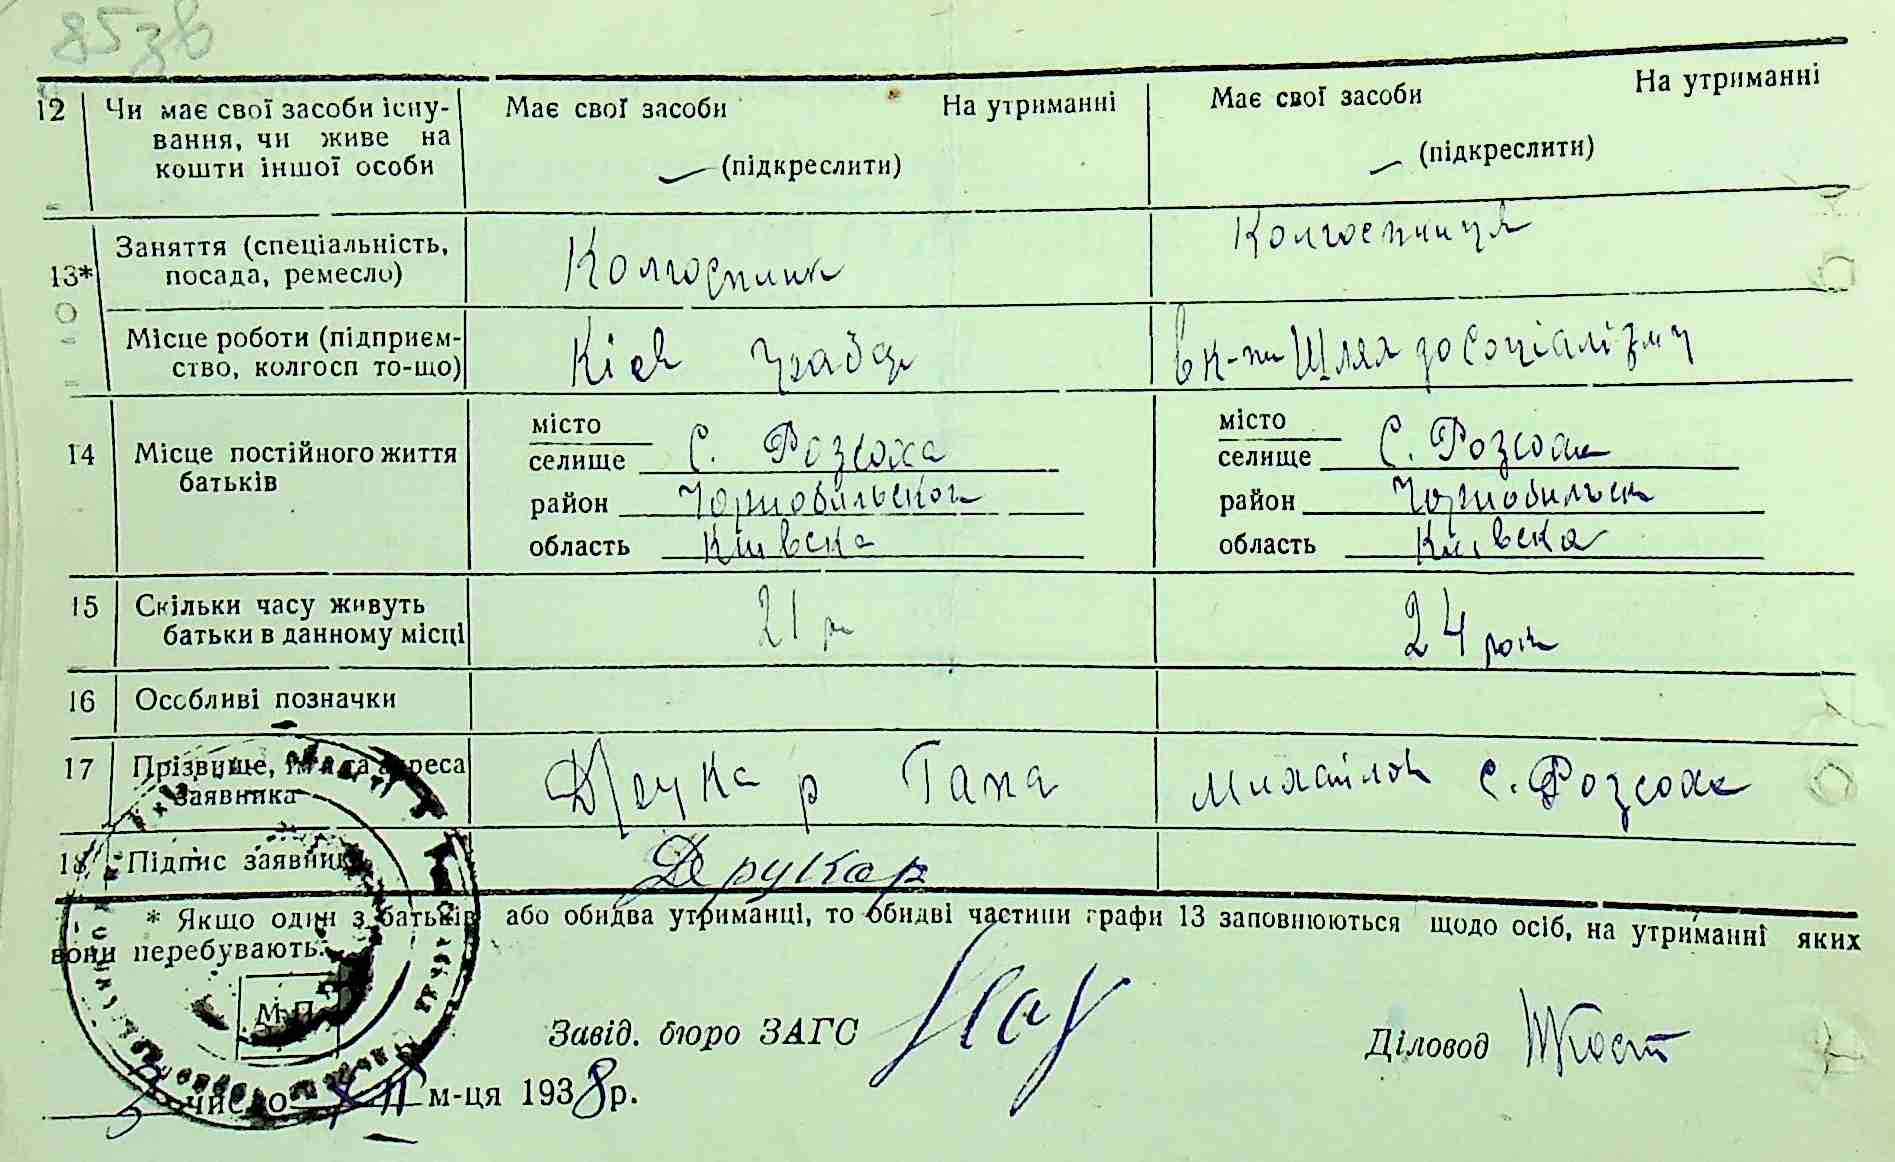 85зв
12 Чи має свої засоби існу-
вання, чи живе на
кошти іншої особи
Має свої засоби На утриманні
(підкреслити)
Має свої засоби На утриманні
(підкреслити)
13* Заняття (спеціальність,
посада, ремесло)
Колгоспник
Колгоспниця
Місце роботи (підприєм-
ство, колгосп то-що)
Київ
в к-пі Шлях до Соціалізму
14 Місце постійного життя
батьків
місто
селище С. Розсоха
район Чорнобильског
область Київска
місто
селище С. Розсоха
район Чорнобильск
область Київска
15 Скільки часу живуть
батьки в данному місці
21 р
24 рок
16 Особливі позначки
17 Прізвище, ім'я та адреса
заявника
Друкар Гана Михайлов с. Розсоха
18 Підпис заявника
Друкар
* Якщо один з батьків або обидва утриманці, то обидві частини графи 13 заповнюються щодо осіб, на утриманні яких
вони перебувають.
М П
Завід. бюро ЗАГС
Діловод
3 число XII м-ця 1938 р.